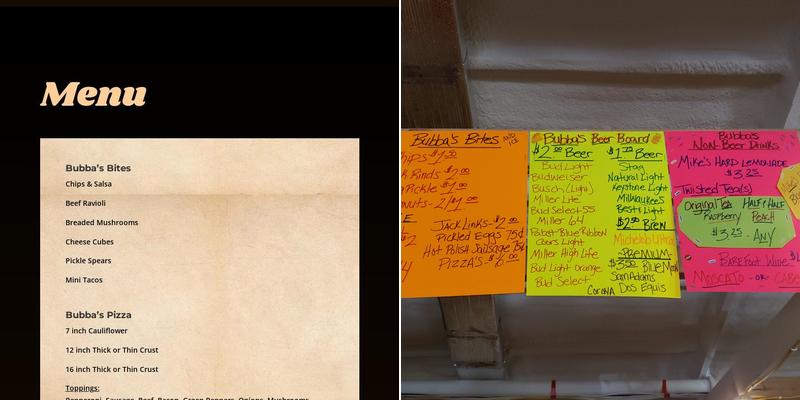 Menu
Bubba's Bites
Chips & Salsa
Beef Ravioli
Breaded Mushrooms
Cheese Cubes
Pickle Spears
Mini Tacos
Bubba's Pizza
7 inch Cauliflower
12 inch Thick or Thin Crust
16 inch Thick or Thin Crust
Toppings:
Pepperoni, Sausage, Beef, Bacon, Green Peppers, Onions, Mushrooms
Bubba's Bites AND ICE
HIPS $1.50
k Rinds $2.00
Pickle $1.00
nuts - 2/$1.00
Jack Links - 2.00
Pickled Eggs 75¢
Hot Polish Sausage
PIZZA'S -
Bubba's Beer Board
$2.00 Beer
Bud Light
Budweiser
Busch (Light)
Miller Lite
Bud Select 55
Miller 64
Pabst Blue Ribbon
Coors Light
Miller High Life
Bud Light Orange
Bud Select
$1.75 Beer
Stag
Natural Light
Keystone Light
Milwaukee's
Best Light
$2.50 Brew
Michelob Ultra
PREMIUM-
$3.50 Blue Moon
Sam Adams
Corona Dos Equis
Bubba's
Non-Beer Drinks
Mike's HARD LEMONADE
$3.25
Twisted Tea(s)
Original Tea HALF & HALF
Raspberry PEACH
$3.25 - ANY
BAREFOOT Wine $
MOSCATO - OR CABS